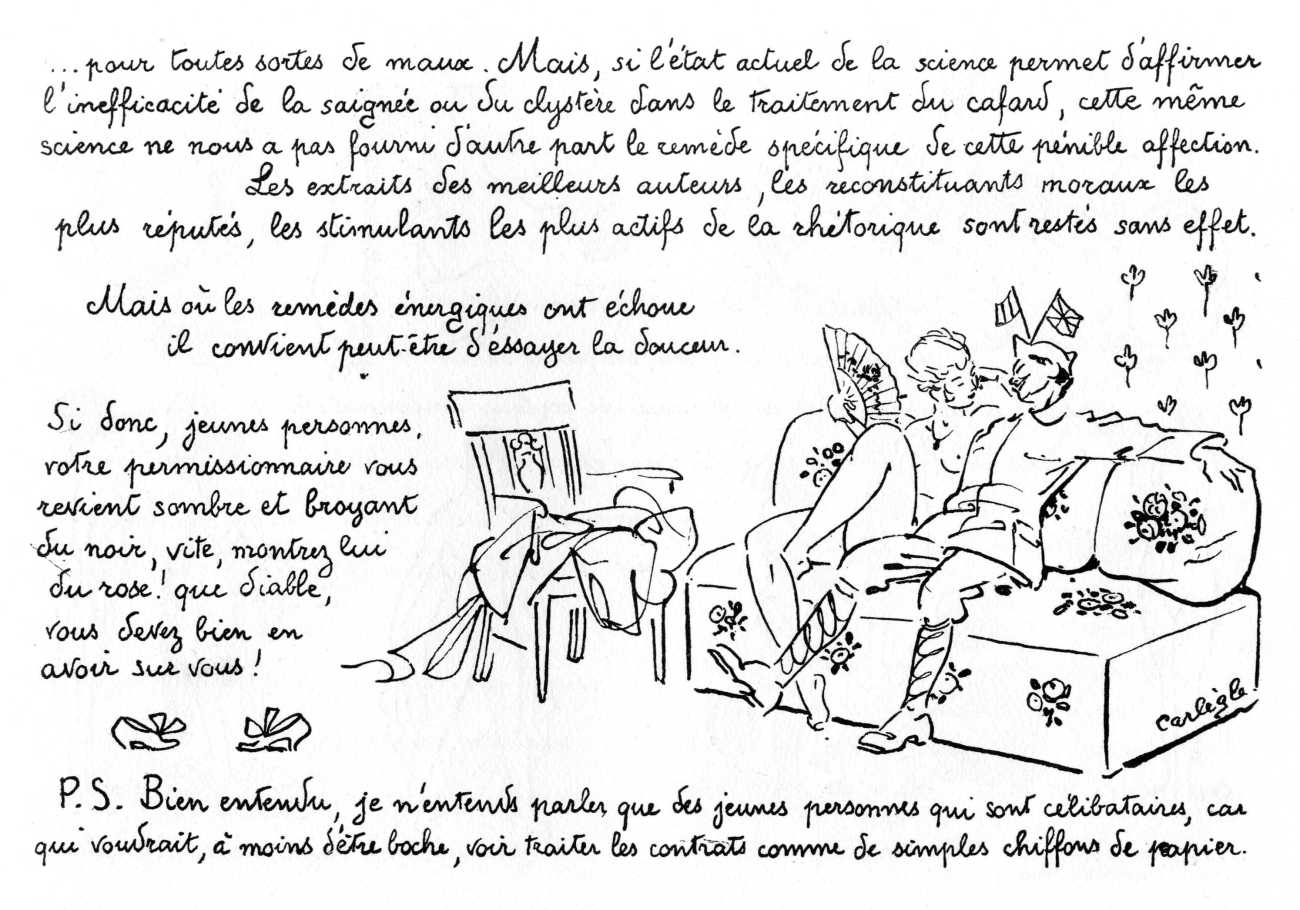 ...pour toutes sortes de maux. Mais, si l'état actuel de la science permet d'affirmer
l'inefficacité de la saignée ou du clystère dans le traitement du cafard, cette même
science ne nous a pas fourni d'autre part le remède spécifique de cette pénible affection.
Les extraits des meilleurs auteurs, les reconstituants moraux les
plus réputés, les stimulants les plus actifs de la rhétorique sont restés sans effet.
Mais où les remèdes énergiques ont échoue
il convient peut-être d'éssayer la douceur.
Si donc, jeunes personnes,
votre permissionnaire vous
revient sombre et broyant
du noir, vite, montrez lui
du rose! que diable,
vous devez bien en
avoir sur vous!
Carlègle
P.S. Bien entendu, je n'entends parler que des jeunes personnes qui sont celibataires, car
qui voudrait, à moins d'être boche, voir traiter les contrats comme de simples chiffons de papier.